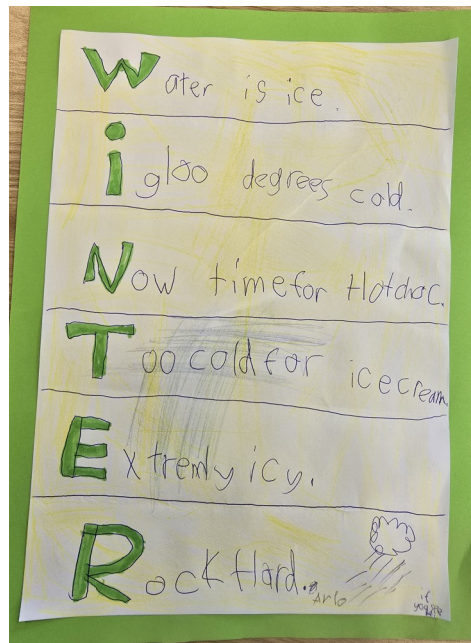 Water is ice.
igloo degrees cold.
Now time for Hotchoc.
Too cold for icecream.
Extremly icy.
Rock Hard.
Arlo